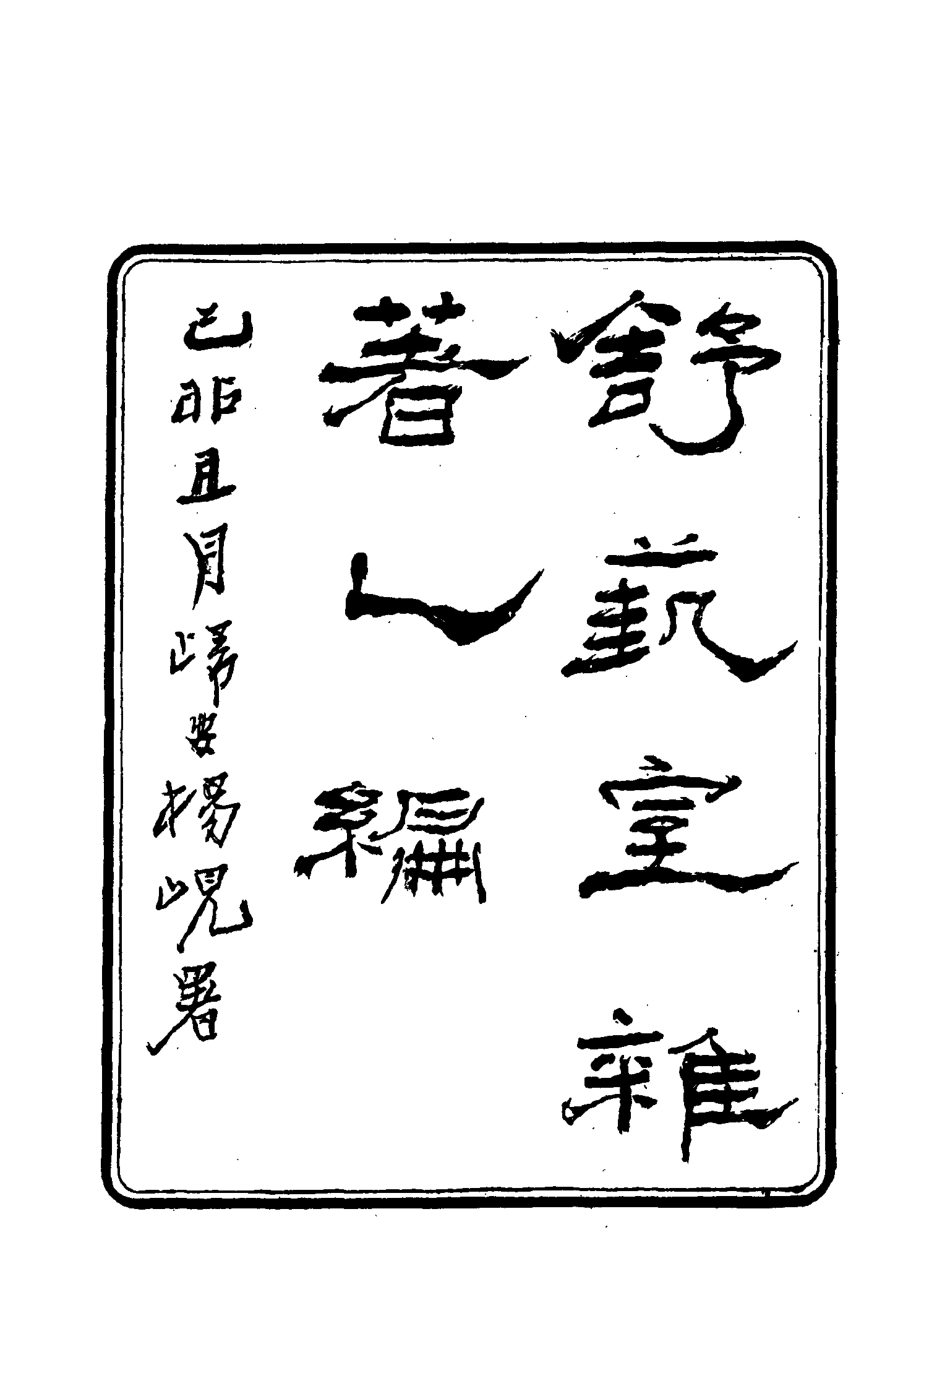 舒蓺室雜
著乙編
己卯且月歸安楊峴署